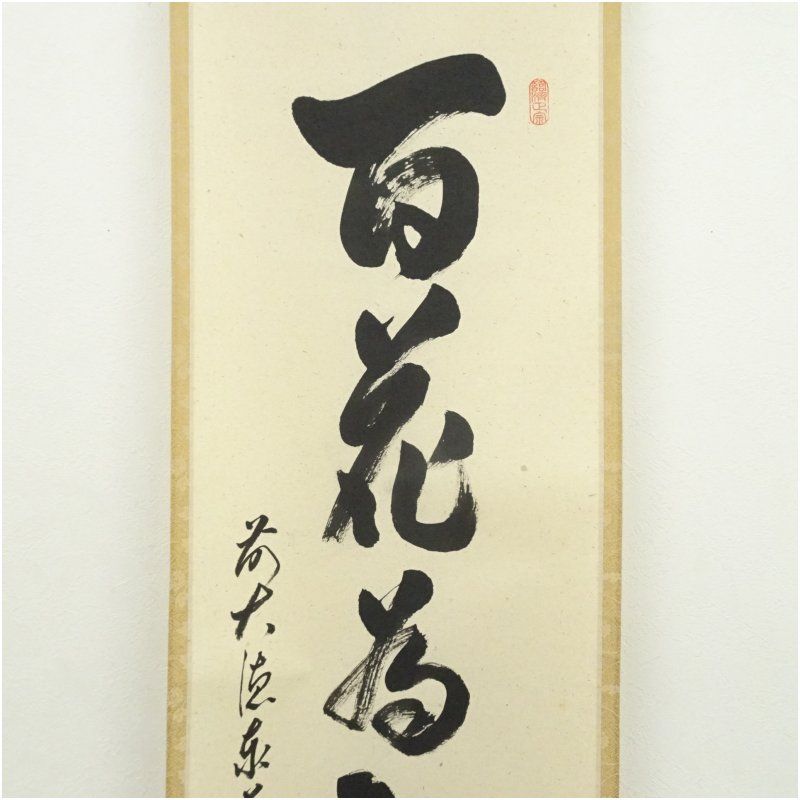 百花為
前大徳泰